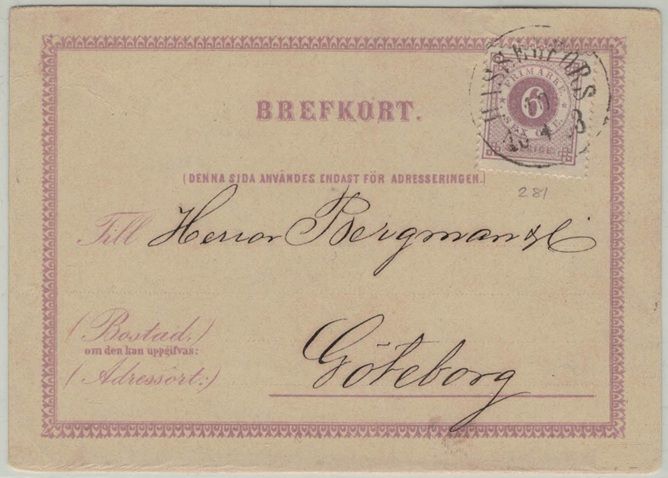 BREFKORT.
FRIMÄRKE
6
SEX ÖRE
(DENNA SIDA ANVÄNDES ENDAST FÖR ADRESSERINGEN.)
281
Till Herrar Bergman & C:
(Bostad,)
om den kan uppgifvas:
(Adressort:)
Göteborg